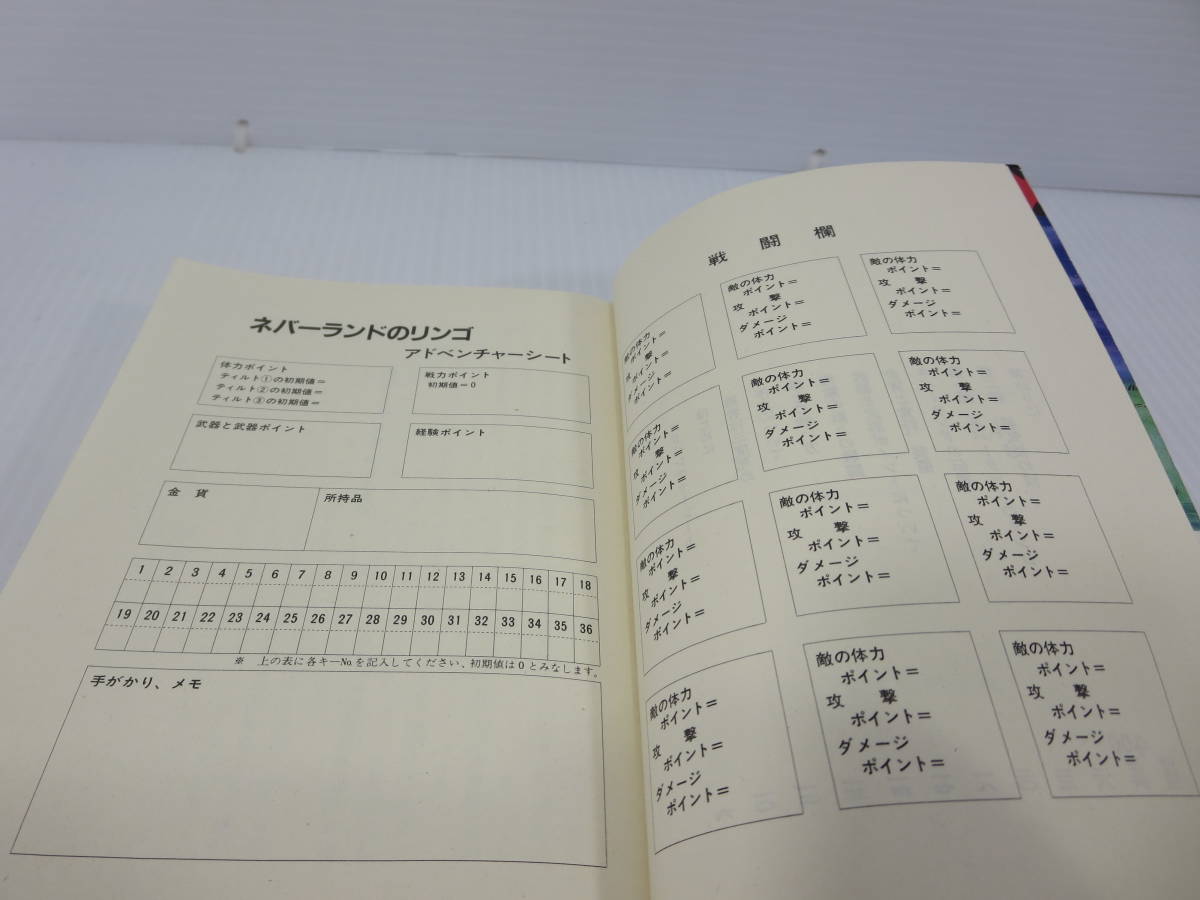 ネバーランドのリンゴ
アドベンチャーシート
体力ポイント
ティルト①の初期値＝
ティルト②の初期値＝
ティルト③の初期値＝
戦力ポイント
初期値＝0
武器と武器ポイント
経験ポイント
金　貨
所持品
1 2 3 4 5 6 7 8 9 10 11 12 13 14 15 16 17 18
19 20 21 22 23 24 25 26 27 28 29 30 31 32 33 34 35 36
※　上の表に各キーNo.を記入してください、初期値は0とみなします。
手がかり、メモ
戦　闘　欄
敵の体力
ポイント＝
攻　撃
ポイント＝
ダメージ
ポイント＝
敵の体力
ポイント＝
攻　撃
ポイント＝
ダメージ
ポイント＝
敵の体力
ポイント＝
攻　撃
ポイント＝
ダメージ
ポイント＝
敵の体力
ポイント＝
攻　撃
ポイント＝
ダメージ
ポイント＝
敵の体力
ポイント＝
攻　撃
ポイント＝
ダメージ
ポイント＝
敵の体力
ポイント＝
攻　撃
ポイント＝
ダメージ
ポイント＝
敵の体力
ポイント＝
攻　撃
ポイント＝
ダメージ
ポイント＝
敵の体力
ポイント＝
攻　撃
ポイント＝
ダメージ
ポイント＝
敵の体力
ポイント＝
攻　撃
ポイント＝
ダメージ
ポイント＝
敵の体力
ポイント＝
攻　撃
ポイント＝
ダメージ
ポイント＝
敵の体力
ポイント＝
攻　撃
ポイント＝
ダメージ
ポイント＝
敵の体力
ポイント＝
攻　撃
ポイント＝
ダメージ
ポイント＝